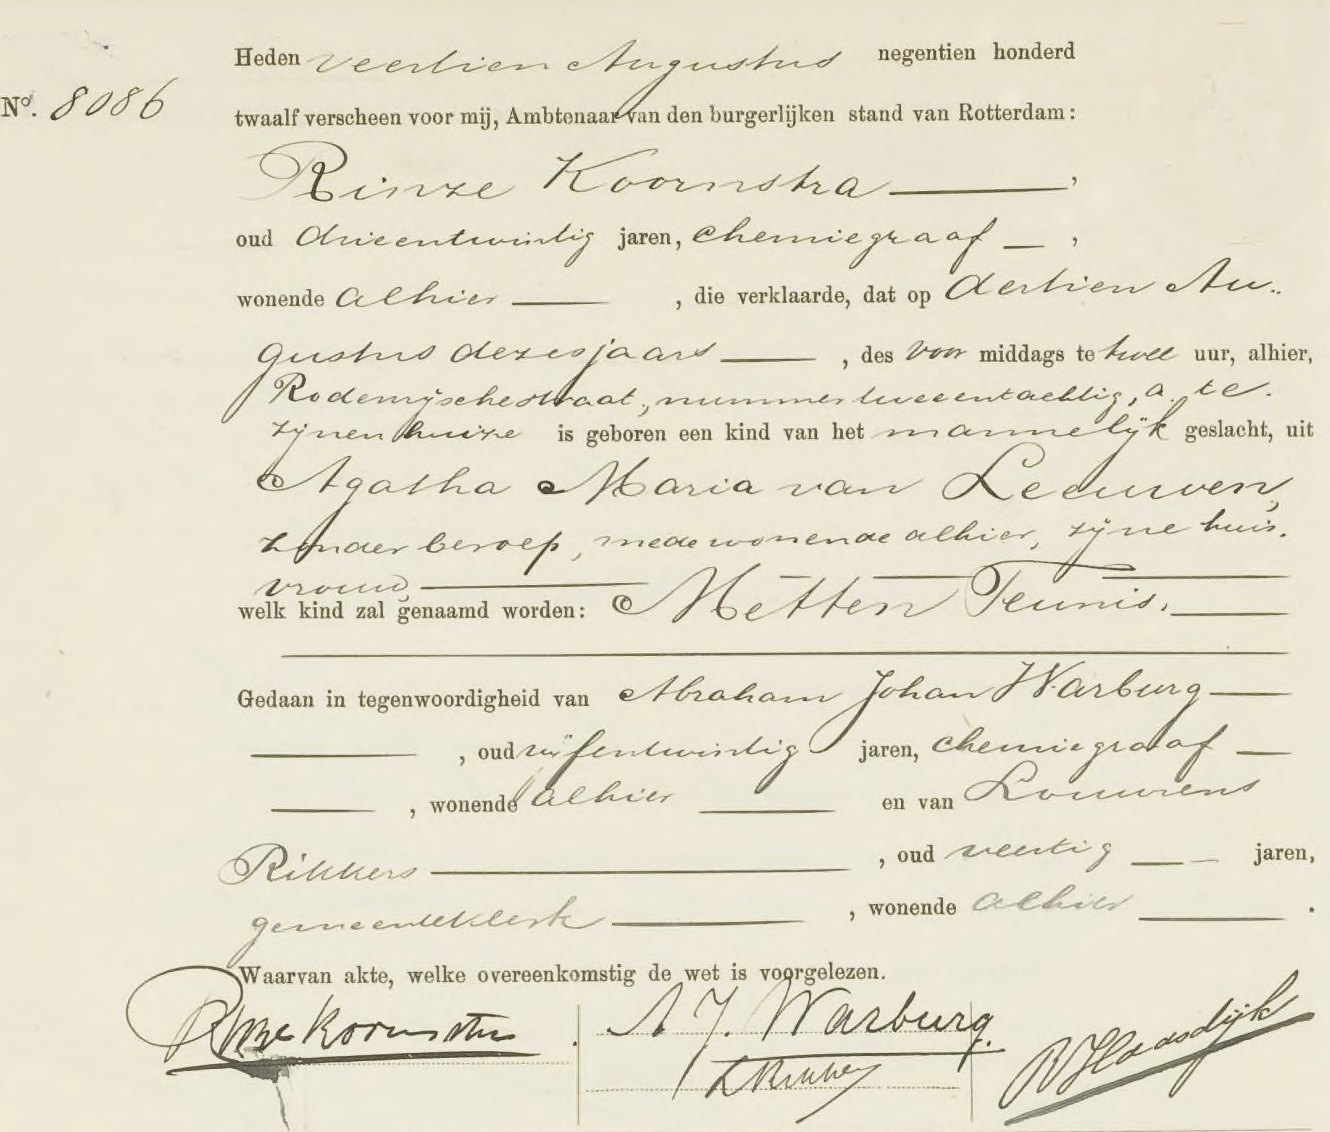 Heden veertien Augustus negentien honderd
No. 8086
twaalf verscheen voor mij, Ambtenaar van den burgerlijken stand van Rotterdam:
Rinze Koornstra,
oud drieentwintig jaren, chemiegraaf,
wonende alhier, die verklaarde, dat op dertien Au-
gustus dezes jaars, des voor middags te twee uur, alhier,
Rodenrijschestraat, nummer tweeentachtig, a. te
zijnen huize is geboren een kind van het mannelijk geslacht, uit
Agatha Maria van Leeuwen,
zonder beroep, mede wonende alhier, zijne huis-
vrouw,
welk kind zal genaamd worden: Metten Teunis.
Gedaan in tegenwoordigheid van Abraham Johan Warburg
, oud vijfentwintig jaren, chemiegraaf
, wonende alhier en van Louwrens
Rikkers, oud veertig jaren,
gemeenteklerk, wonende alhier.
Waarvan akte, welke overeenkomstig de wet is voorgelezen.
Rinze Koornstra
A J. Warburg.
L Rikkers